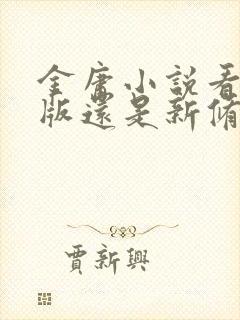 金庸小說看
版還是新修
賈新興